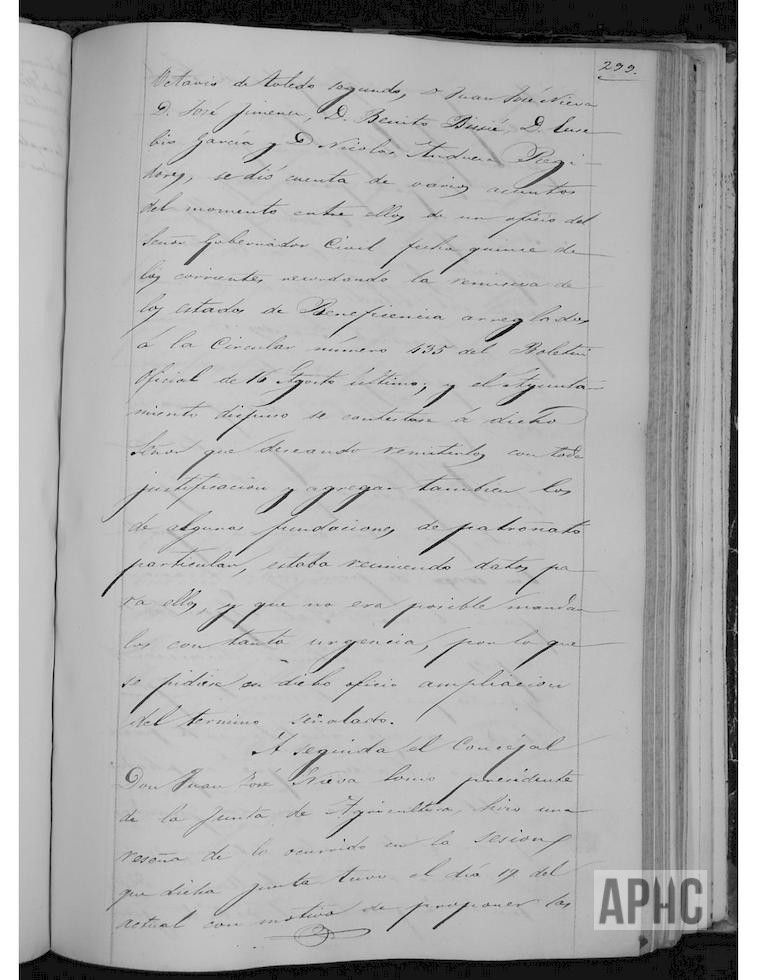 299.
Octavio de toledo segundo, D Juan José Nieva
D. José Jimenez, D. Benito Bisié, D. Euse
bio Garcia y D Nicolas Andueza Regi-
dores, se dió cuenta de varios asuntos
del momento entre ellos de un oficio del
Señor Gobernador Civil fecha quince de
los corrientes recordando la remision de
los estados de Beneficencia arreglados
á la Circular número 435 del Boletin
Oficial de 16 Agosto último; y el Ayunta-
miento dispuso se contestase á dicho
Señor que deseando remitirlos con toda
justificacion y agregar tambien los
de algunas fundaciones de patronato
particular, estaba reuniendo datos pa
ra ello, y que no era posible mandar
los con tanta urgencia, por lo que
se pidiese en dicho oficio ampliacion
del termino señalado.
A seguida el Concejal
Don Juan José Nieva como presidente
de la Junta de Agricultura, hizo una
reseña de lo ocurrido en la sesion
que dicha junta tuvo el dia 17 del
actual con motivo de proponer las
APHC